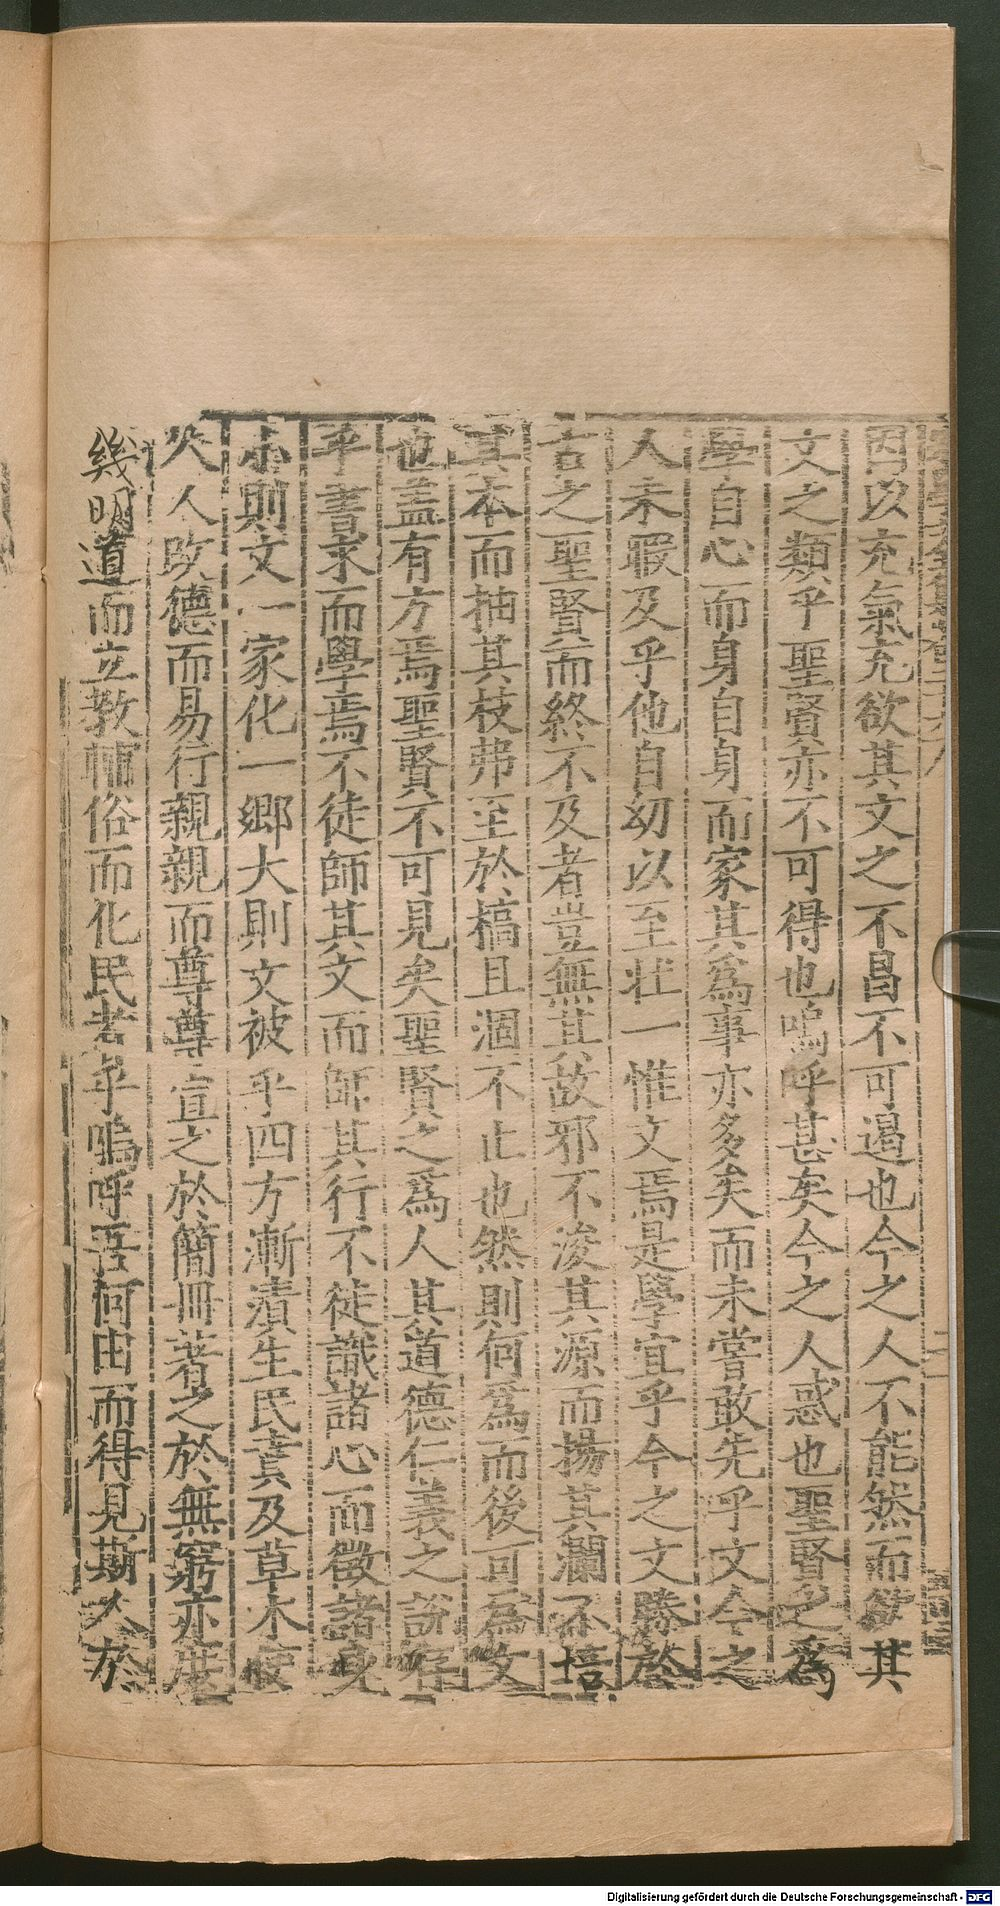 因以充氣充欲其文之不昌不可遏也今之人不能然而欲其
文之類乎聖賢亦不可得也嗚呼甚矣今之人惑也聖賢之為
學自心而身自身而家其為事亦多矣而未嘗敢先乎文今之
人未暇及乎他自幼以至壯一惟文焉是學宜乎今之文勝於
古之聖賢而終不及者豈無其故邪不浚其源而揚其瀾不培
其本而抽其枝弗至於槁且涸不止也然則何為而後可為文
也蓋有方焉聖賢不可見矣聖賢之為人其道德仁義之說存
乎書求而學焉不徒師其文而師其行不徒識諸心而徵諸身
小則文一家化一鄉大則文被乎四方漸漬生民賁及草木使
人人改德而易行親親而尊尊宣之於簡冊著之於無窮亦庶
幾明道而立教輔俗而化民者乎嗚呼吾何由而得見斯人於
Digitalisierung gefördert durch die Deutsche Forschungsgemeinschaft - DFG